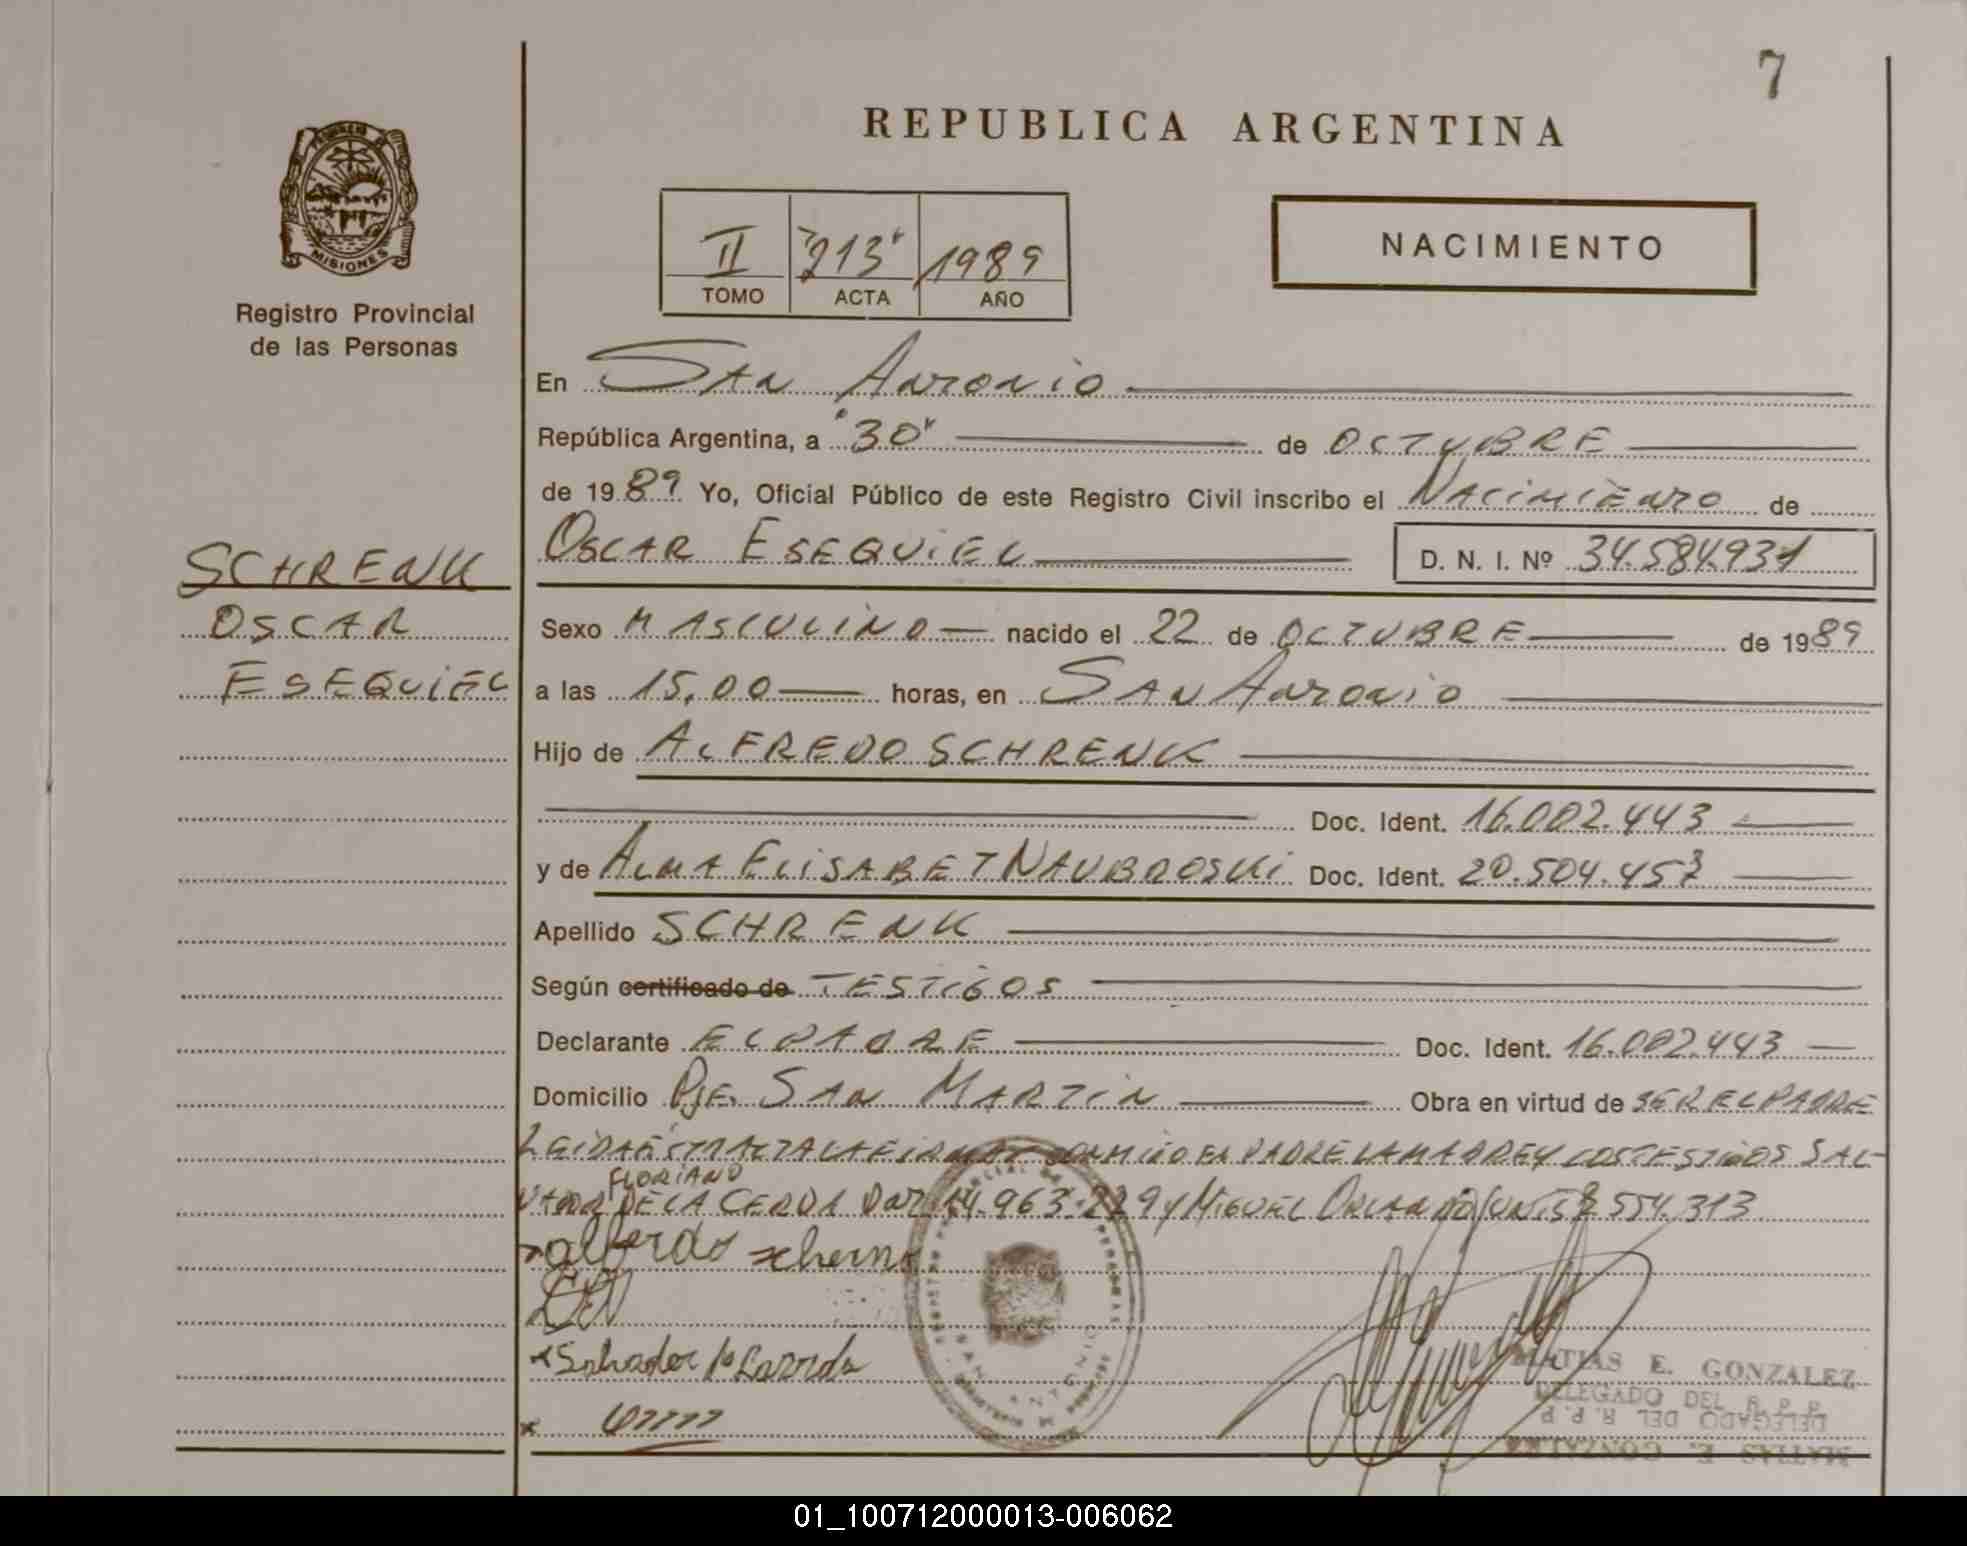 7
REPUBLICA ARGENTINA
MISIONES
Registro Provincial
de las Personas
II "213" 1989
TOMO ACTA AÑO
NACIMIENTO
En San Antonio
República Argentina, a "30" de OCTUBRE
de 1989 Yo, Oficial Público de este Registro Civil inscribo el Nacimiento de
OSCAR ESEQUIEL D. N. I. Nº 34.584.931
SCHRENK
OSCAR
ESEQUIEL
Sexo MASCULINO nacido el 22 de OCTUBRE de 1989
a las 15,00 horas, en San Antonio
Hijo de ALFREDO SCHRENK
Doc. Ident. 16.002.443
y de ALMA ELISABET NAUBROSKI Doc. Ident. 20.504.457
Apellido SCHRENK
Según certificado de TESTIGOS
Declarante EL PADRE Doc. Ident. 16.002.443
Domicilio Pje. SAN MARTIN Obra en virtud de SER EL PADRE
LEIDA EL ACTA LA FIRMAN CONMIGO EL PADRE LA MADRE Y LOS TESTIGOS SAL-
FLORIANO
VADOR DE LA CERDA 14.963.229 y MIGUEL ORLANDO 554.313
Salvador
SAN ANTONIO
MATIAS E. GONZALEZ
DELEGADO DEL R.P.P
DELEGADO DEL R.P.P
MATIAS E. GONZALEZ
01_100712000013-006062